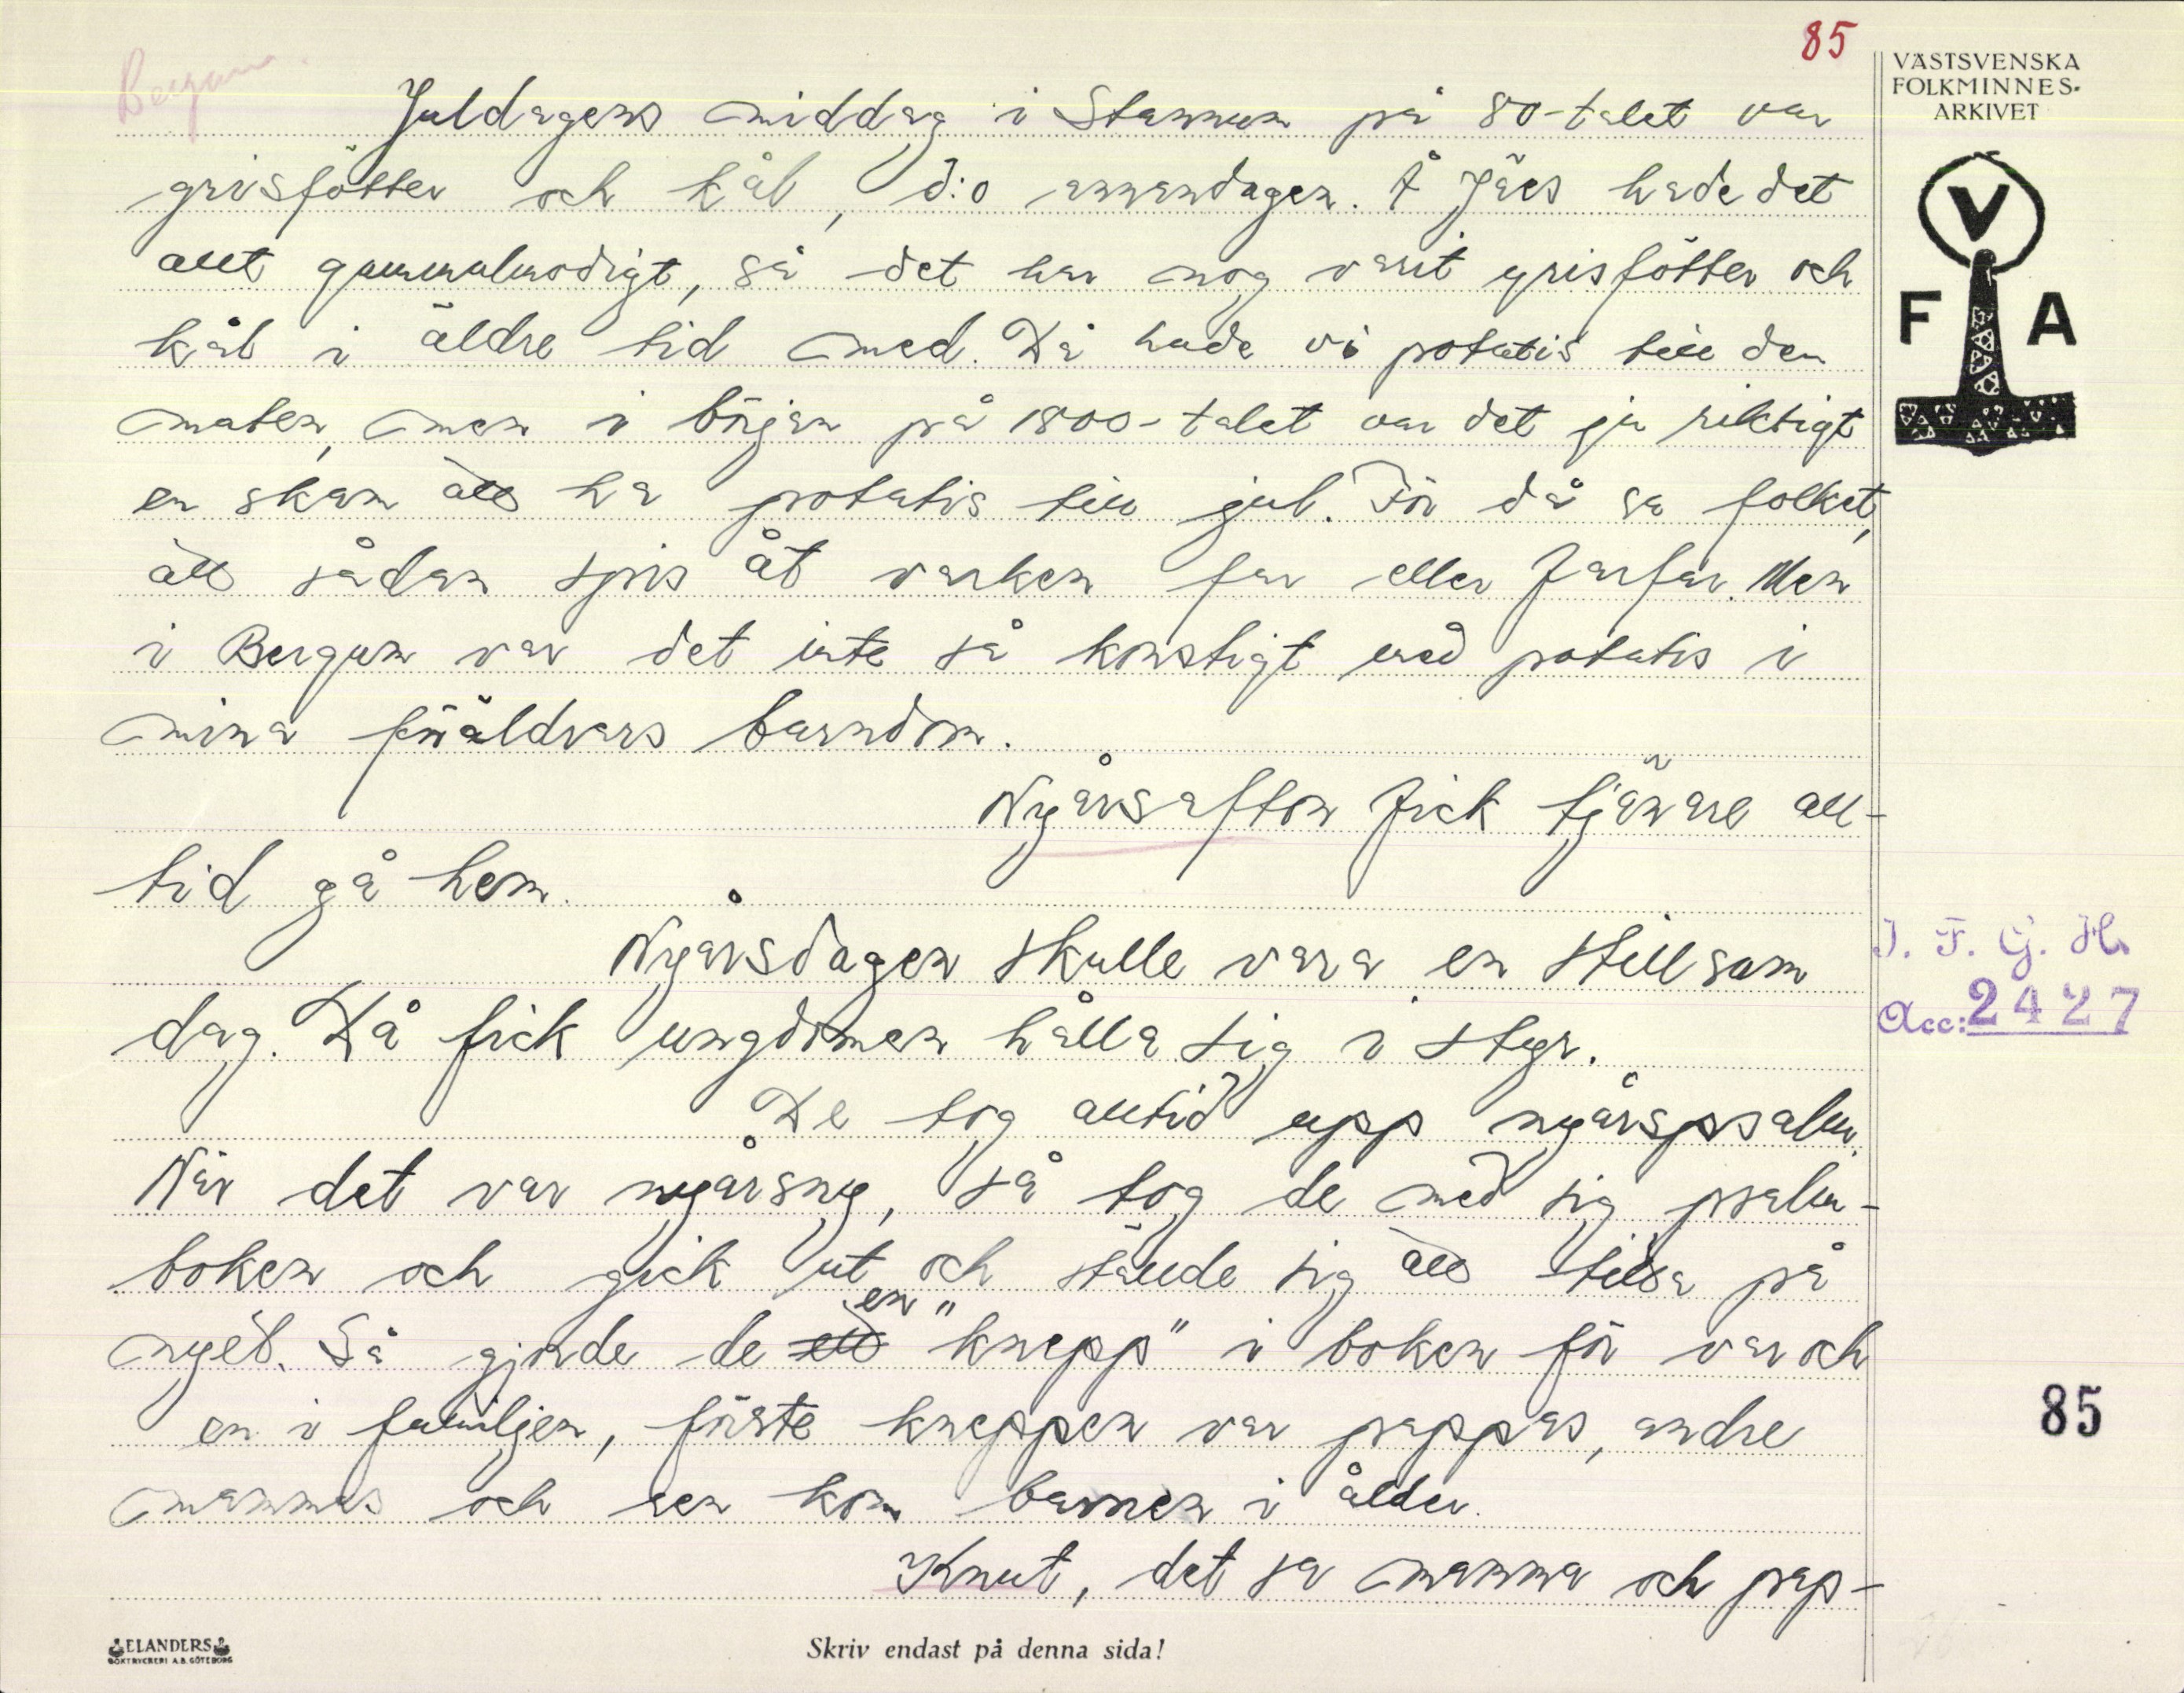 85
Bergum.
VÄSTSVENSKA
FOLKMINNES-
ARKIVET
V
F A
Juldagens middag i Stannum på 80-talet var
grisfötter och kål, d:o annandagen. Å Jäes hade det
allt gammalmodigt, så det har nog varit grisfötter och
kål i äldre tid med. Då hade vi potatis till den
maten, men i början på 1800-talet var det ju riktigt
en skam att ha potatis till jul. För då sa folket,
att sådan spis åt varken far eller farfar. Men
i Bergum var det inte så konstigt med potatis i
mina föräldrars barndom.
Nyårsafton fick tjänare all-
tid gå hem.
Nyårsdagen skulle vara en stillsam
dag. Då fick ungdomen hålla sig i styr.
De tog alltid upp nyårspsalm.
När det var nyårsny, så tog de med sig psalm-
boken och gick ut och ställde sig att titta på
nyet. Så gjorde de ett en "knepp" i boken för var och
en i familjen, förste kneppen var pappas, andre
mammas och sen kom barnen i ålder.
Knut, det sa mamma och pap-
I. F. G. H.
Acc: 2427
85
ELANDERS
BOKTRYCKERI A.B. GÖTEBORG
Skriv endast på denna sida!